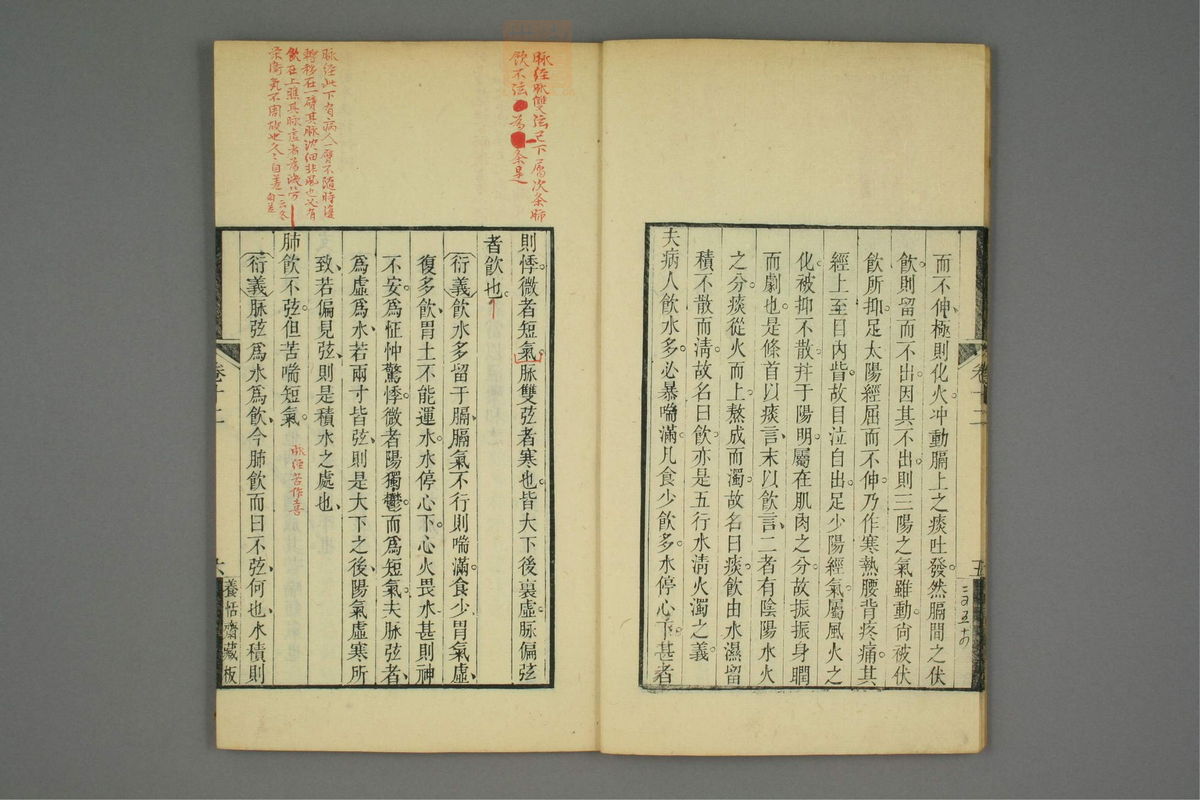 而不伸極則化火冲動膈上之痰吐發然膈間之伏
飲則留而不出因其不出則三陽之氣雖動尚被伏
飲所抑足太陽經屈而不伸乃作寒熱腰背疼痛其
經上至目內眥故目泣自出足少陽經氣屬風火之
化被抑不散幷于陽明屬在肌肉之分故振振身瞤
而劇也是條首以痰言末以飲言二者有陰陽水火
之分痰從火而上熬成而濁故名曰痰飲由水濕留
積不散而淸故名曰飲亦是五行水淸火濁之義
夫病人飲水多必暴喘滿凡食少飲多水停心下甚者
卷十二
五
脉经脉雙弦已下層次条肺
飲不弦為条是
則悸微者短氣脈雙弦者寒也皆大下後裏虛脈偏弦
者飲也
衍義飲水多留于膈膈氣不行則喘滿食少胃氣虛
復多飲胃土不能運水水停心下心火畏水甚則神
不安爲怔忡驚悸微者陽獨鬱而爲短氣夫脈弦者
爲虛爲水若兩寸皆弦則是大下之後陽氣虛寒所
致若偏見弦則是積水之處也
脉经此下有病人一臂不随時復
轉移在一臂其脉沈細非風也必有
飲在上焦其脉虛者為微勞
榮衛氣不周故也久久自差一云冬
自差
肺飲不弦但苦喘短氣
脉经苦作喜
衍義脈弦爲水爲飲今肺飲而曰不弦何也水積則
卷十二
六
養恬齋藏板